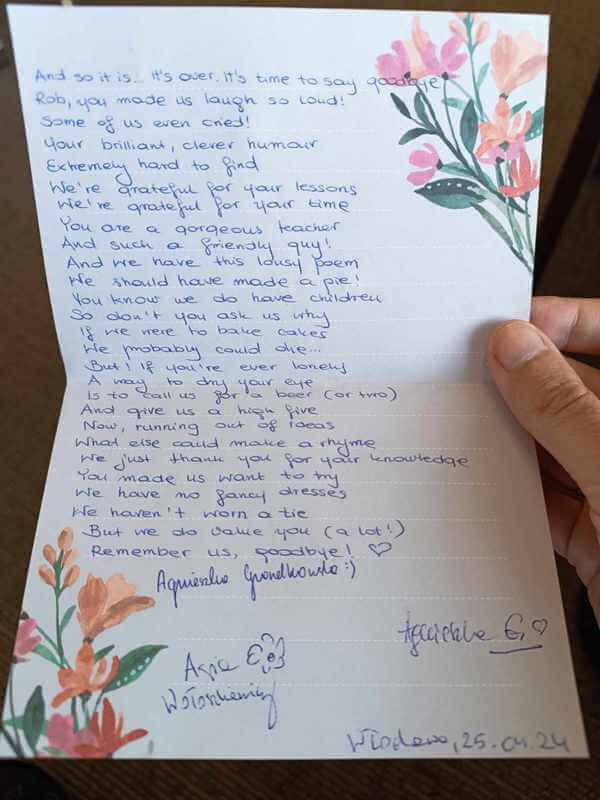 And so it is... It's over. It's time to say goodbye
Rob, you made us laugh so loud!
Some of us even cried!
Your brilliant, clever humour
Extremely hard to find
We're grateful for your lessons
We're grateful for your time
You are a gorgeous teacher
And such a friendly guy!
And we have this lousy poem
We should have made a pie!
You know we do have children
So don't you ask us why
If we were to bake cakes
We probably could die...
But! If you're ever lonely
A way to dry your eye
Is to call us for a beer (or two)
And give us a high five
Now, running out of ideas
What else could make a rhyme
We just thank you for your knowledge
You made us want to try
We have no fancy dresses
We haven't worn a tie
But we do value you (a lot!)
Remember us, goodbye! ♡
Agnieszka :)
Agnieszka G. ♡
Asia
Włodawa, 25.04.24